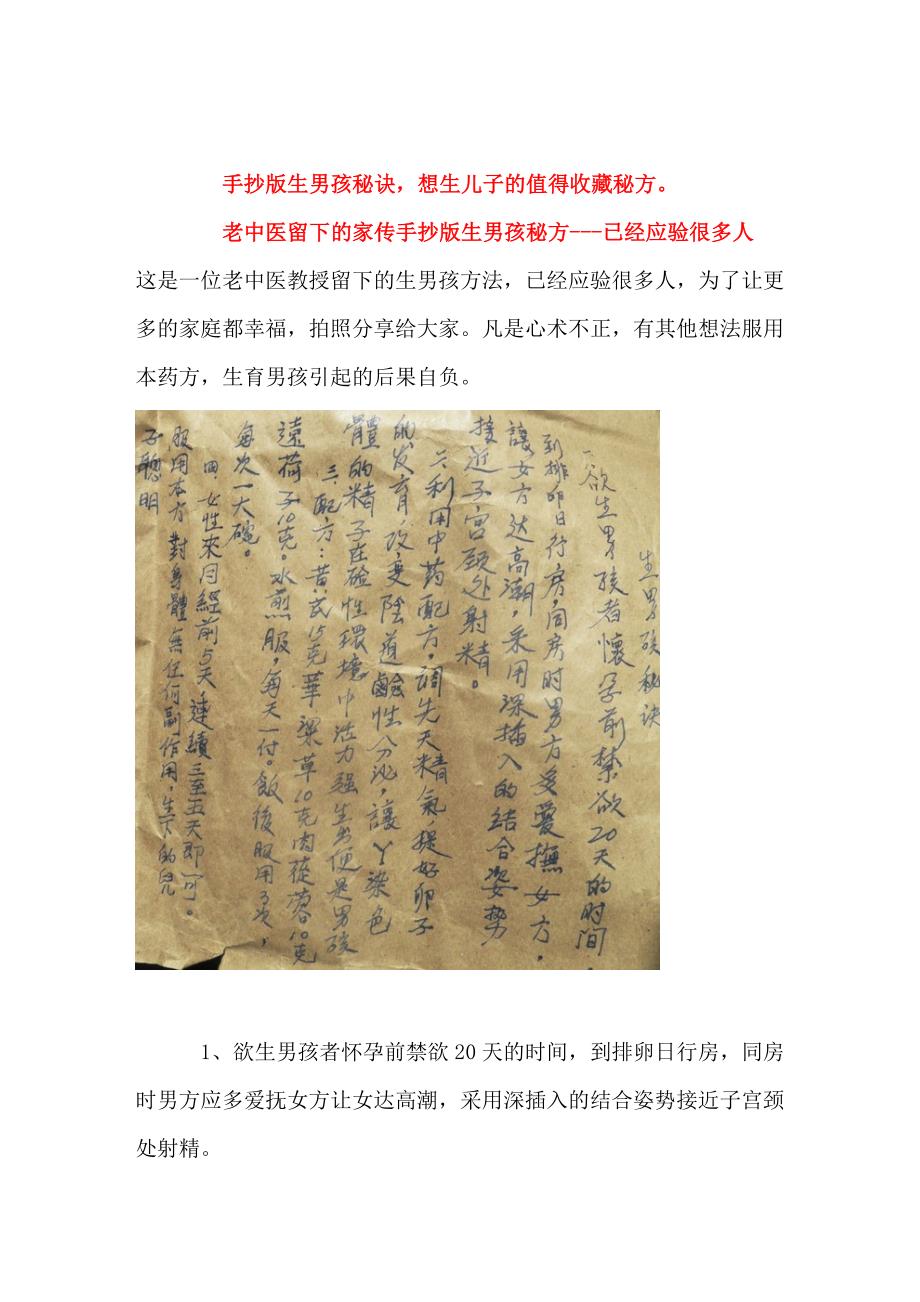 手抄版生男孩秘诀，想生儿子的值得收藏秘方。
老中医留下的家传手抄版生男孩秘方---已经应验很多人
这是一位老中医教授留下的生男孩方法，已经应验很多人，为了让更
多的家庭都幸福，拍照分享给大家。凡是心术不正，有其他想法服用
本药方，生育男孩引起的后果自负。
生男孩秘诀
一欲生男孩者懷孕前禁欲20天的时间，
到排卵日行房，同房时男方多愛撫女方，
讓女方达高潮，采用深插入的结合姿势
接近子宫颈处射精。
二利用中药配方，調先天精氣提好卵子
的发育，改变陰道鹼性分泌，讓丫染色
體的精子在硷性環境中活力强生出便是男孩
三、配方：黄芪15克華梁草10克肉蓯蓉10克
遠荷子10克。水煎服，每天一付。飯後服用3次，
每次一大碗。
四、女性來月經前5天連續三至五天即可。
服用本方對身體無任何副作用，生下的兒
子聰明
1、欲生男孩者怀孕前禁欲20天的时间，到排卵日行房，同房
时男方应多爱抚女方让女达高潮，采用深插入的结合姿势接近子宫颈
处射精。